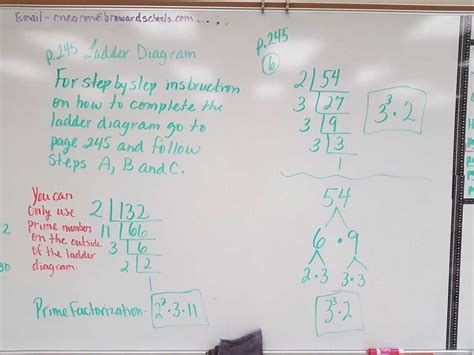 Email - cnegron@browardschools.com
p.245 Ladder Diagram
For step by step instruction
on how to complete the
ladder diagram go to
page 245 and follow
Steps A, B and C.
You can
only use
prime numbers
on the outside
of the ladder
diagram.
2 132
11 66
3 6
2 2
1
Prime Factorization - 2² · 3 · 11
p.245
6
2 54
3 27
3 9
3 3
1
3³ · 2
54
6 · 9
2 · 3 3 · 3
3³ · 2